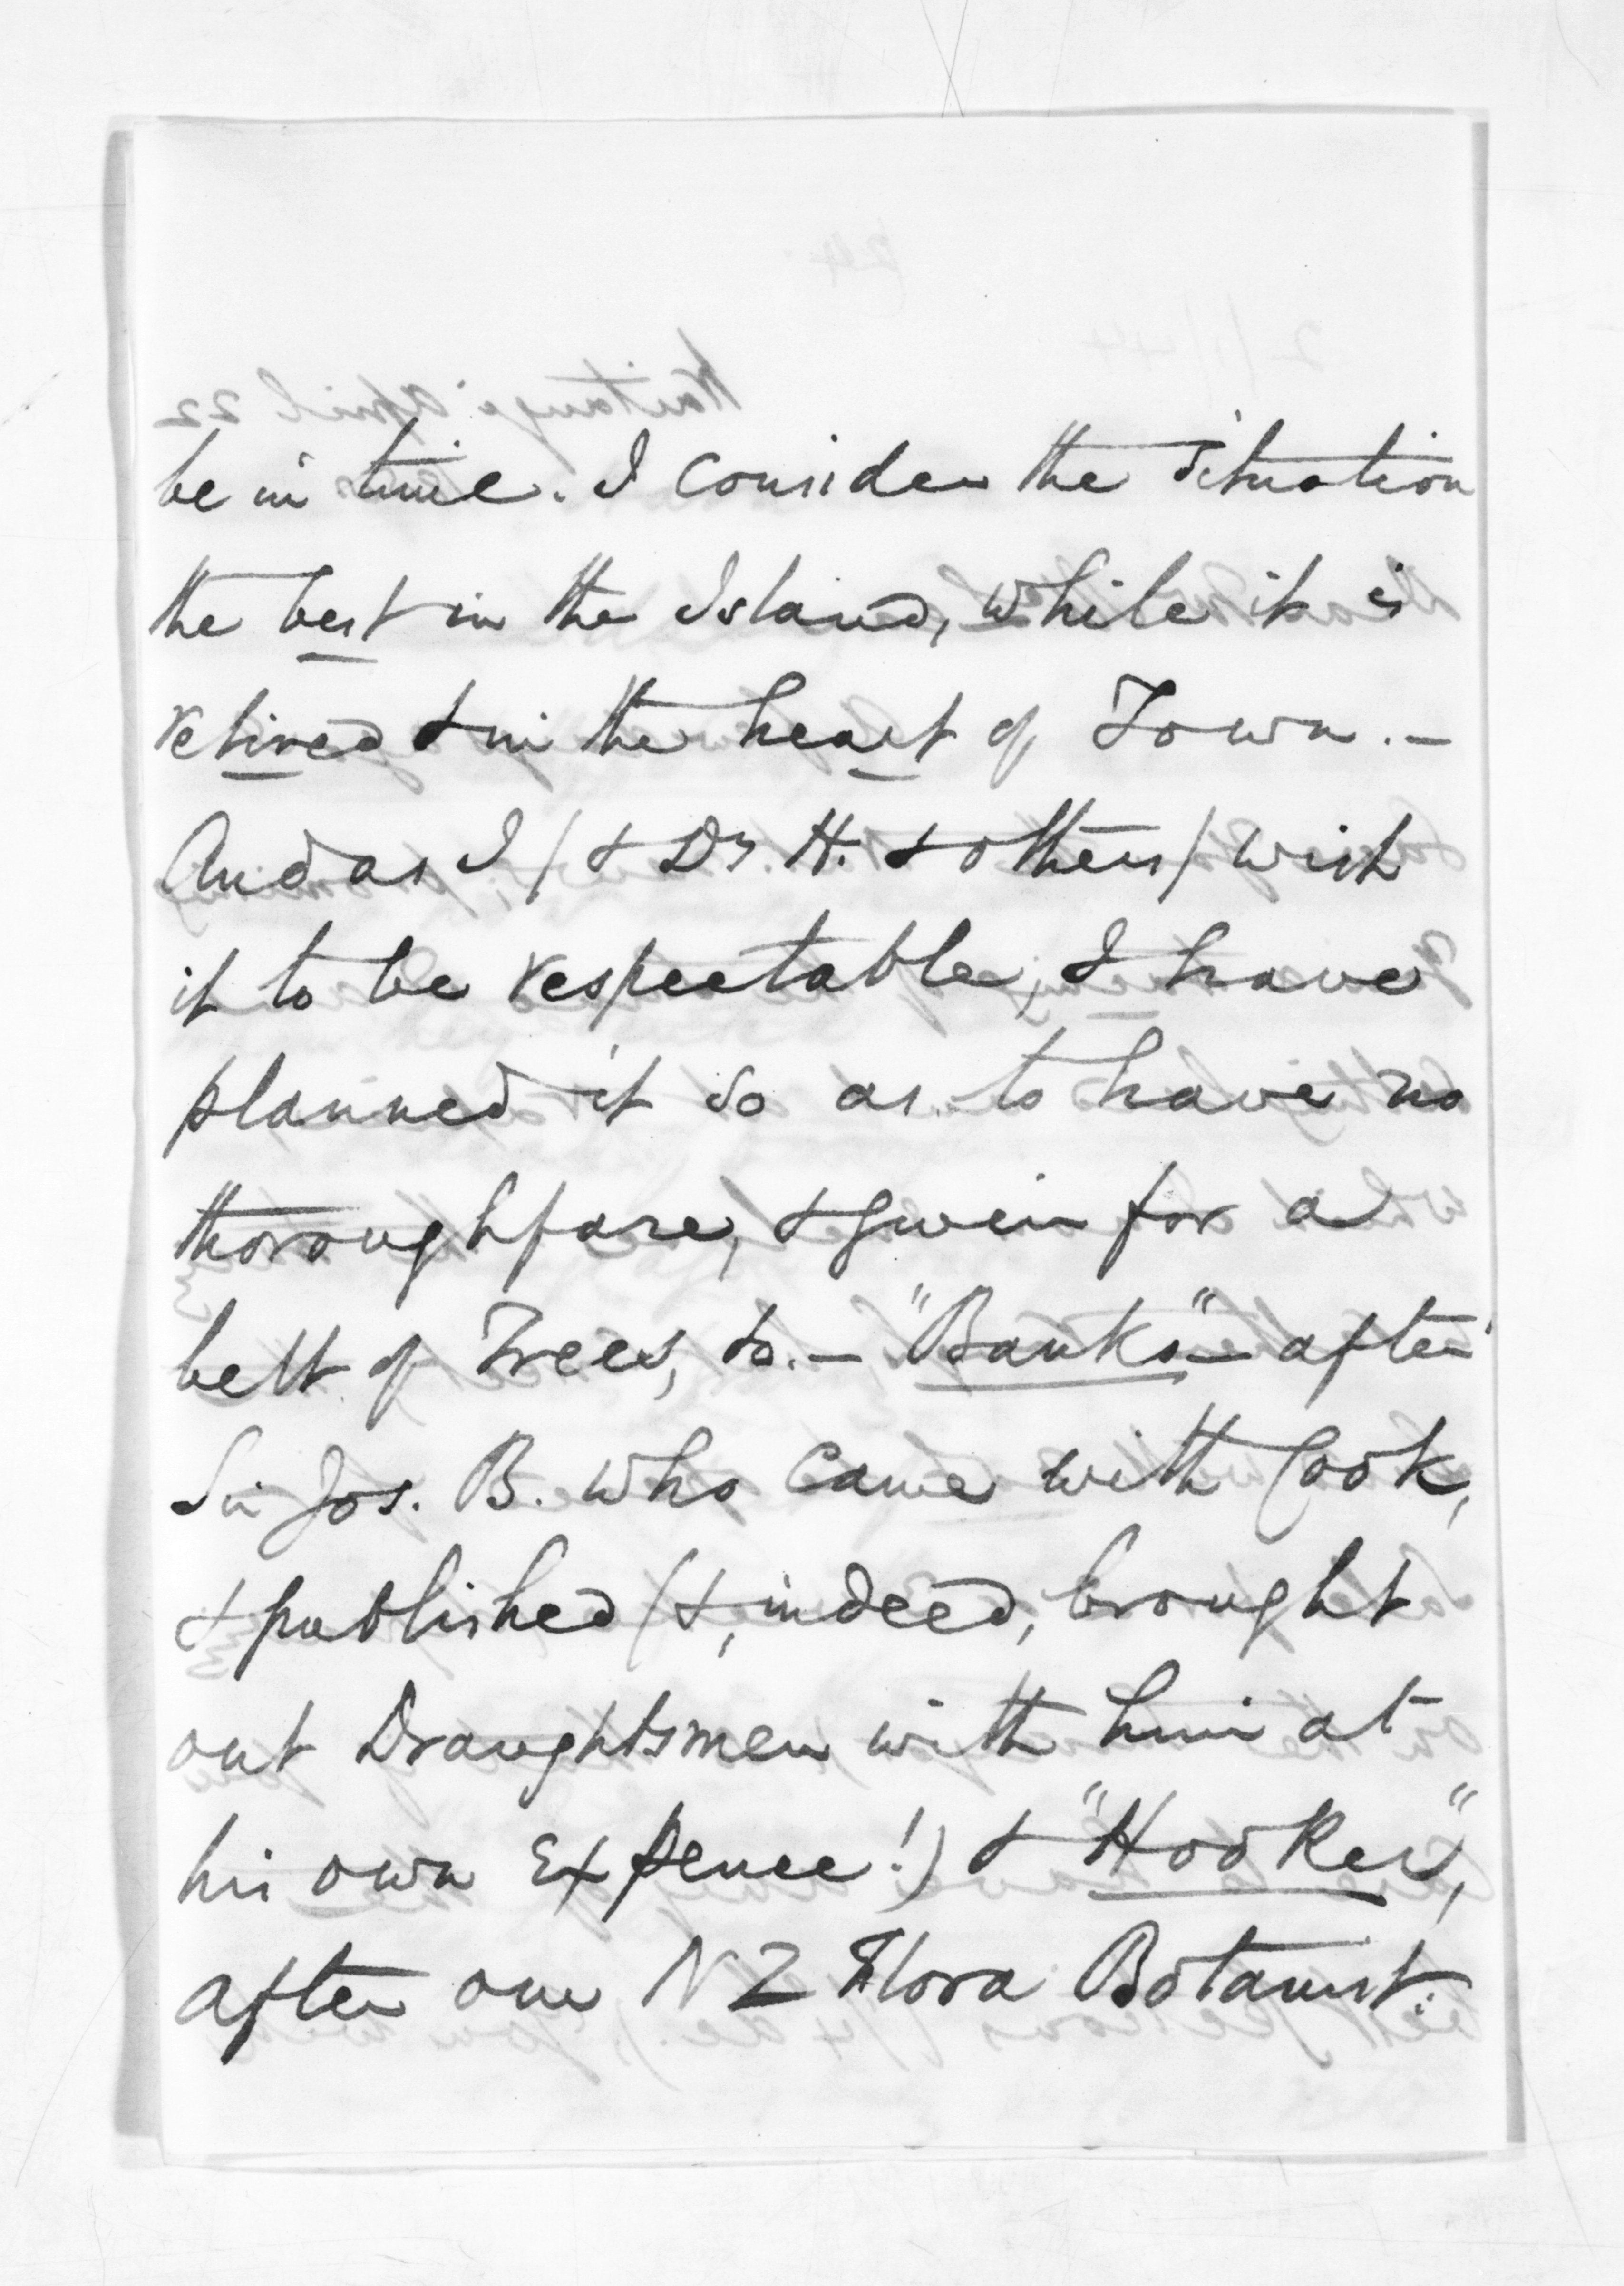 be in time. I consider the situation
the best in the Island, while it is
retired & in the heart of Town.—
And as I (& Dr. H. & others) wish
it to be respectable, I have
planned it so as to have no
thoroughfare, & given for a
belt of Trees, &c.— "Banks"— after
Sir Jos. B. who came with Cook,
& published (&, indeed, brought
out Draughtsmen with him at
his own expence!) & "Hooker",
after our NZ Flora Botanist: